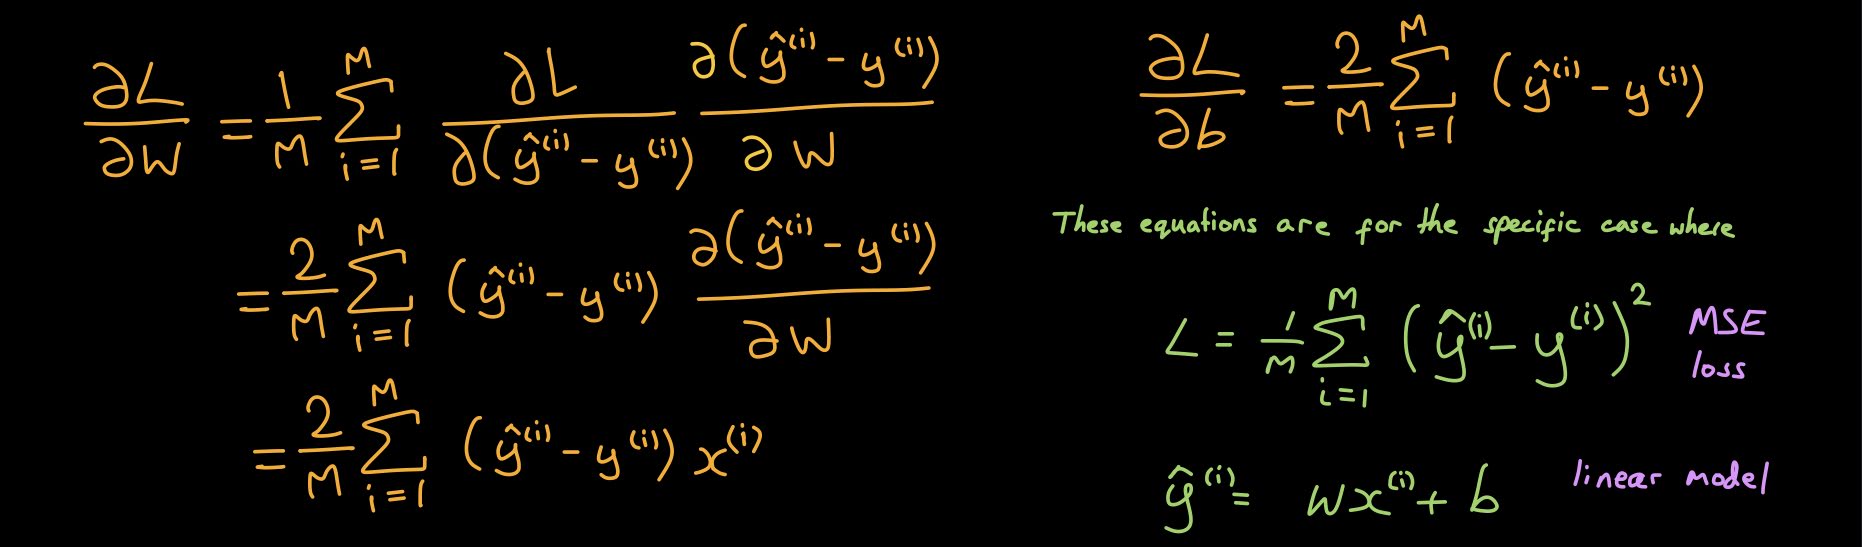 ∂L/∂w = 1/M ∑_{i=1}^{M} ∂L/∂(ŷ^{(i)} - y^{(i)}) ∂(ŷ^{(i)} - y^{(i)})/∂w
= 2/M ∑_{i=1}^{M} (ŷ^{(i)} - y^{(i)}) ∂(ŷ^{(i)} - y^{(i)})/∂w
= 2/M ∑_{i=1}^{M} (ŷ^{(i)} - y^{(i)}) x^{(i)}
∂L/∂b = 2/M ∑_{i=1}^{M} (ŷ^{(i)} - y^{(i)})
These equations are for the specific case where
L = 1/M ∑_{i=1}^{M} (ŷ^{(i)} - y^{(i)})^2 MSE
loss
ŷ^{(i)} = wx^{(i)} + b linear model